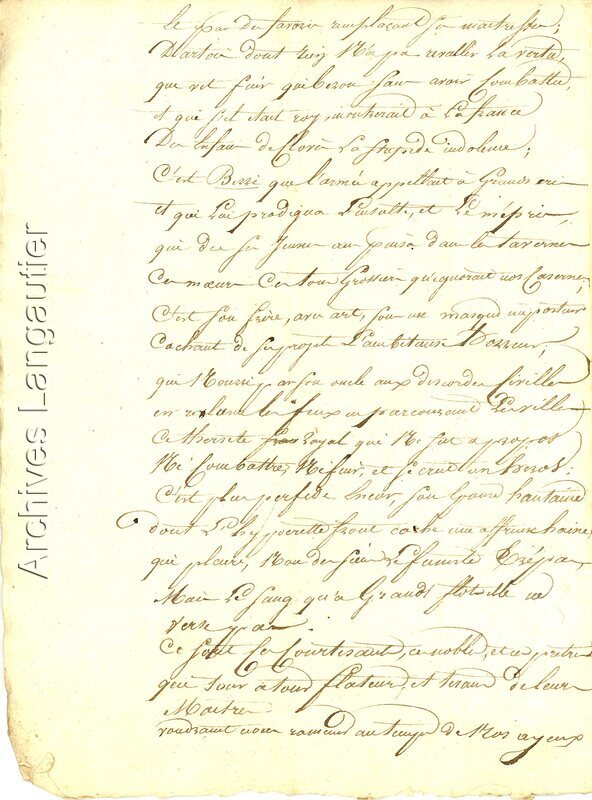 le par du favori remplaçant sa maitresse;
D'artois dont rien N'a pu reveller La vertu,
que vit fuir quiberon sans avoir Combattu,
et que s'il etait roy, montrerait à La france
Des Enfans de Clovis La stupide indolence;
C'est Berri que l'armée appellait à Grands cris
et qui Lui prodigua L'insulte, et Le mépris,
qui des sa Jeunesse puisa dans les tavernes
Ces mœurs Ce ton Grossier qu'ignorait nos Casernes,
C'est son frère, avec art, sous un masque imposteur
Cachant de ses projets L'ambitieuse
qui Nourri par son oncle aux discordes Civilles
en les feux en parcourant Les villes
Ce thersite royal qui Ne sut a propos
Ni Combattre, Ni fuir, et se crut un heros:
C'est plus perfide Encor, son Epouse hautaine
dont L'hyppocrite front cache une affreuse haine,
qui pleure, Non des siens Le funeste trépas,
Mais Le sang, qu'a Grands flots elle ne
verse pas.
Ce sont ses Courtisants, ces nobles, et ces pretres
qui tour à tour flateurs, et tirans de leurs
Maitres
voudraient nous ramener au temps de Nos ayeux
Archives Langautier